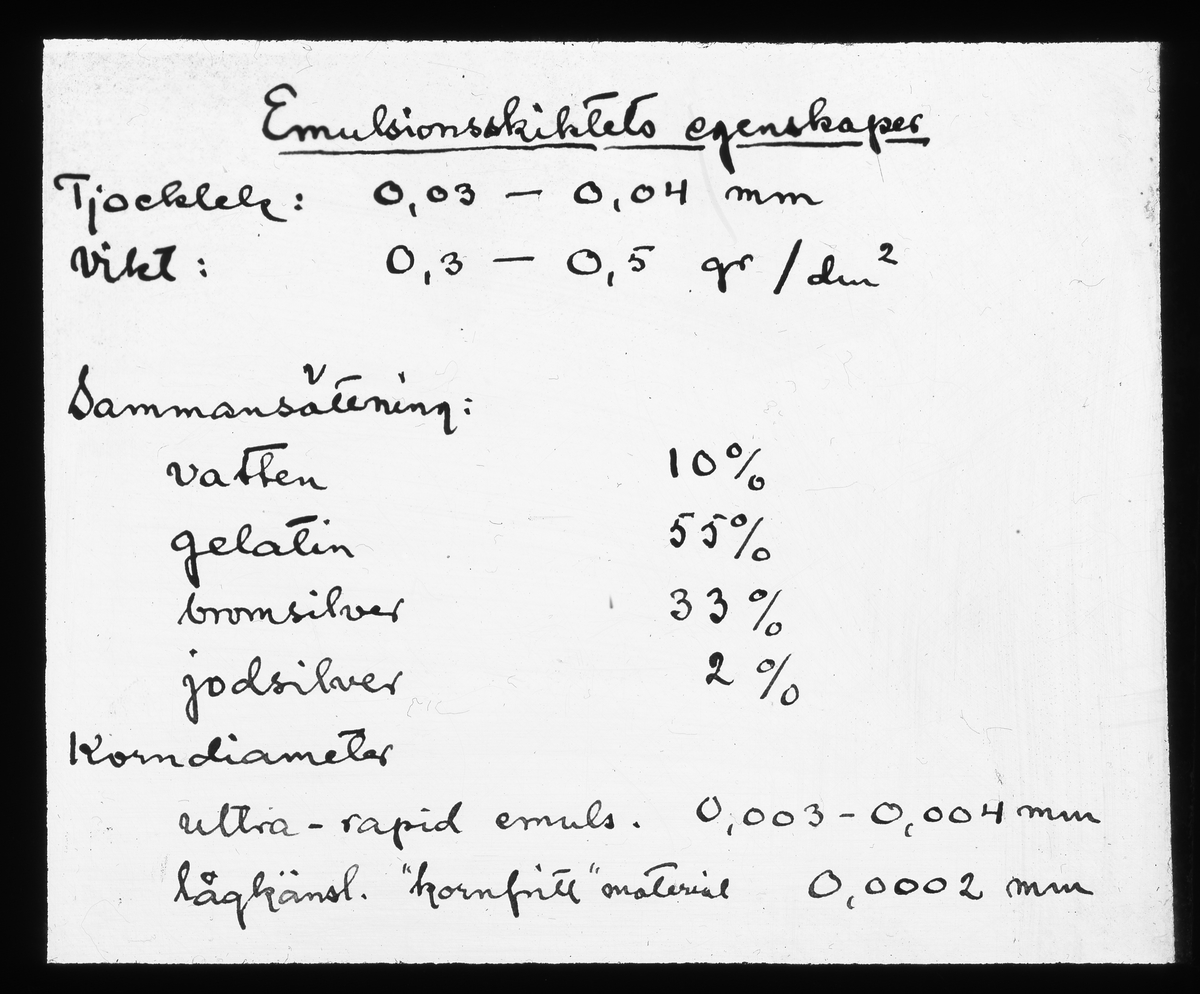 Emulsionsskiktets egenskaper
Tjocklek: 0,03 — 0,04 mm
Vikt: 0,3 — 0,5 gr/dm²
Sammansättning:
vatten 10%
gelatin 55%
bromsilver 33%
jodsilver 2%
Korndiameter
ultra-rapid emuls. 0,003-0,004 mm
lågkänsl. "kornfritt" material 0,0002 mm